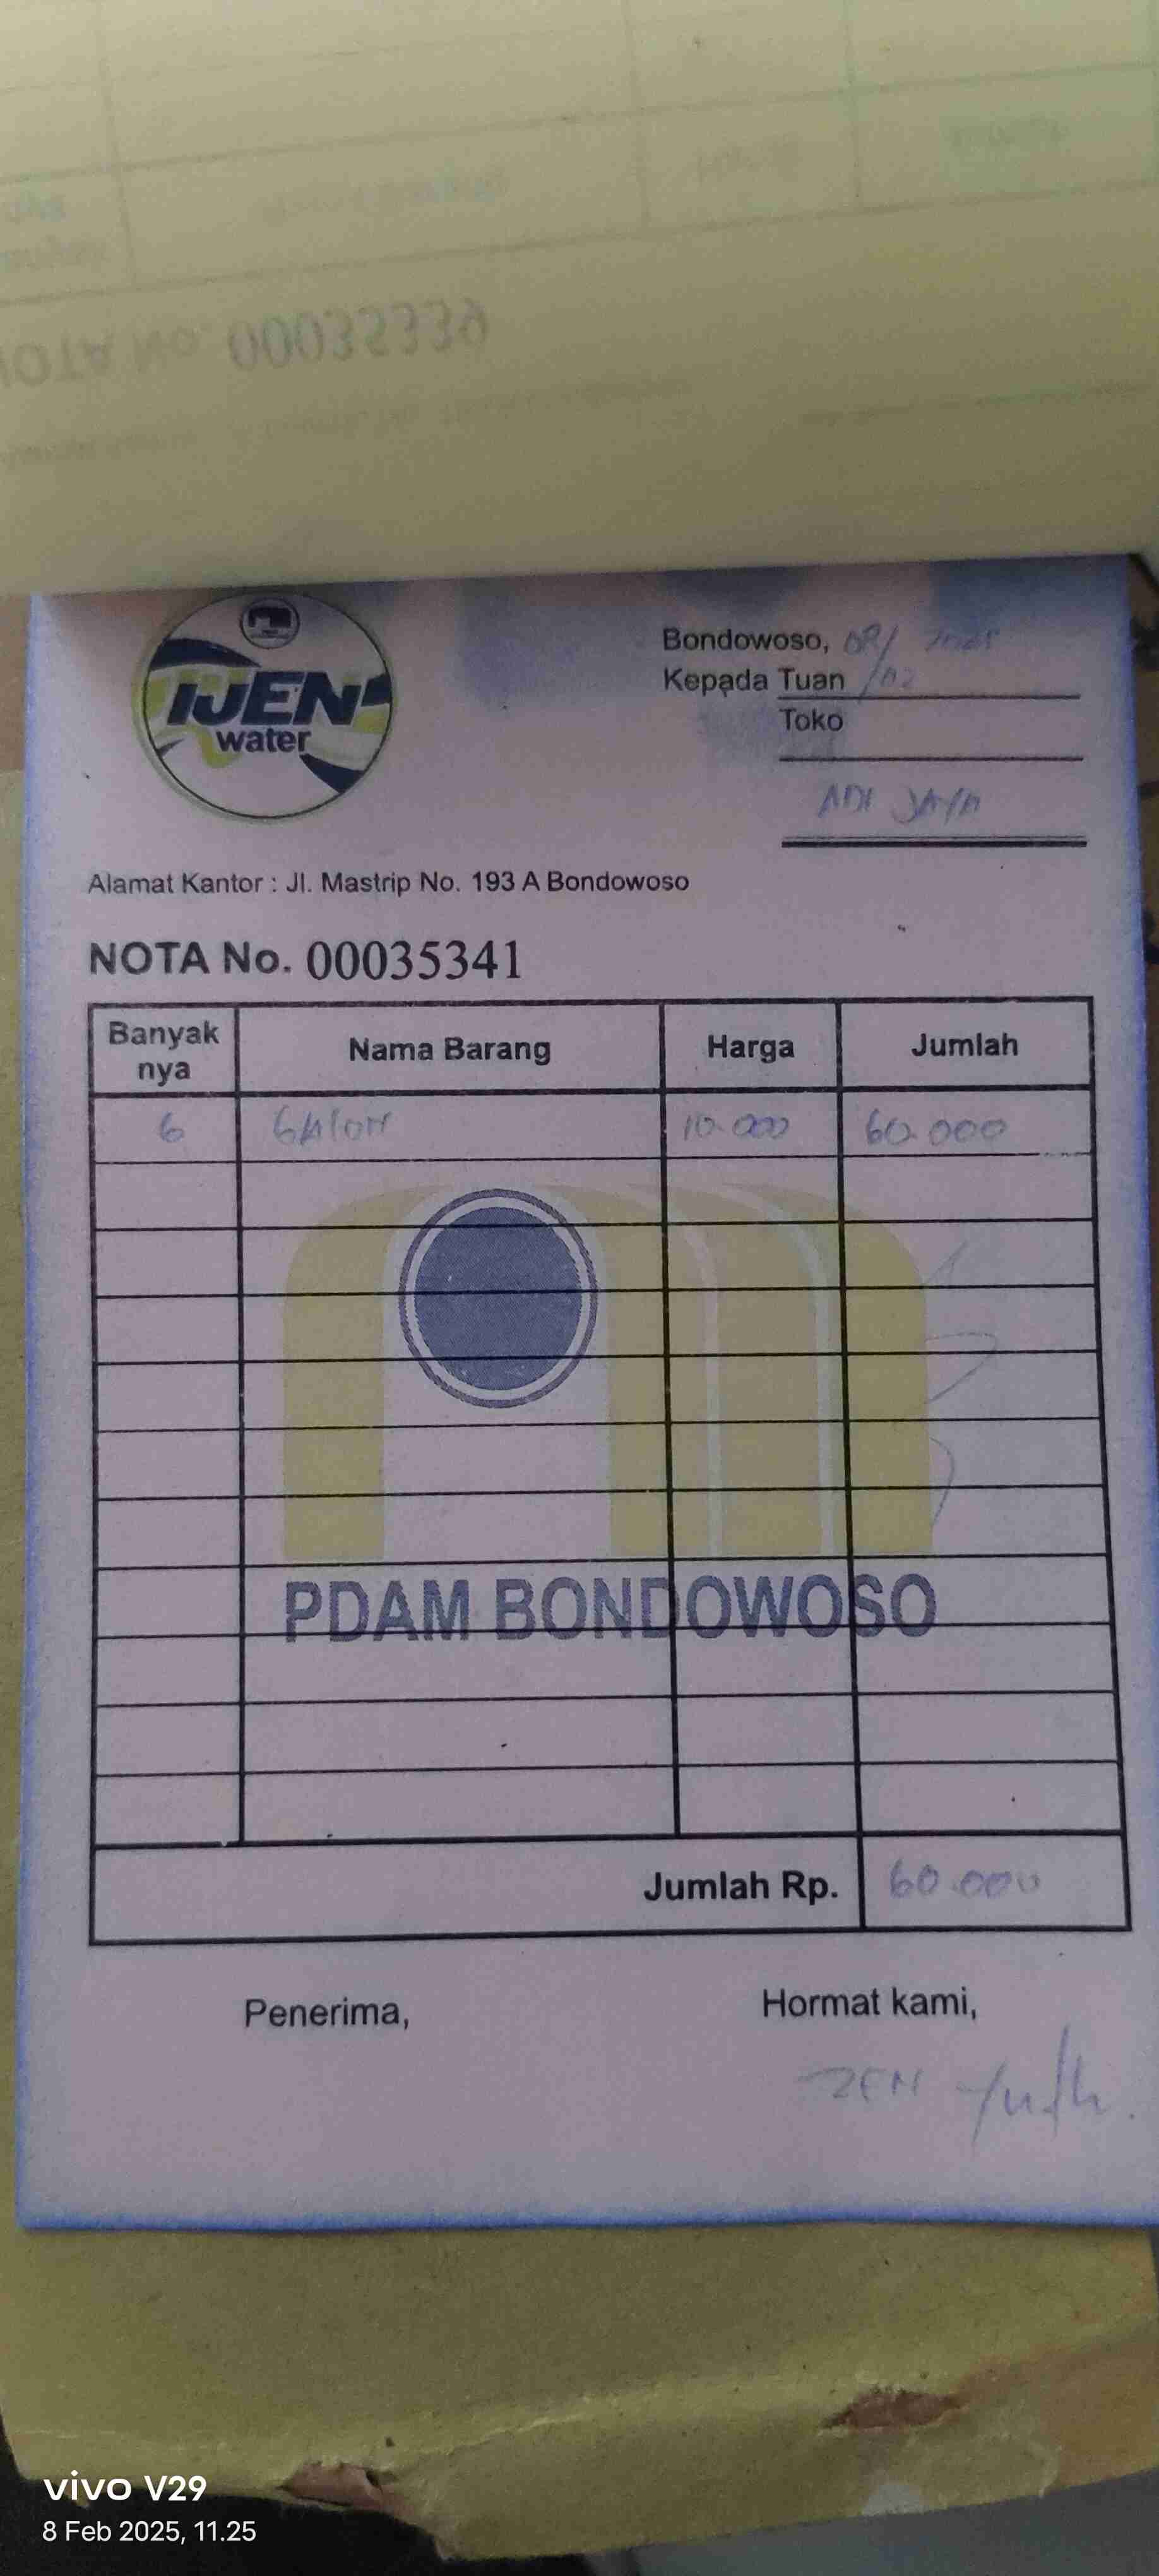 NOTA No. 00035339
IJEN
water
Bondowoso, 08/02 2025
Kepada Tuan
Toko
ADI JAYA
Alamat Kantor : Jl. Mastrip No. 193 A Bondowoso
NOTA No. 00035341
Banyak nya Nama Barang Harga Jumlah
6 GAlon 10.000 60.000
PDAM BONDOWOSO
Jumlah Rp. 60.000
Penerima, Hormat kami,
ZEN
vivo V29
8 Feb 2025, 11.25